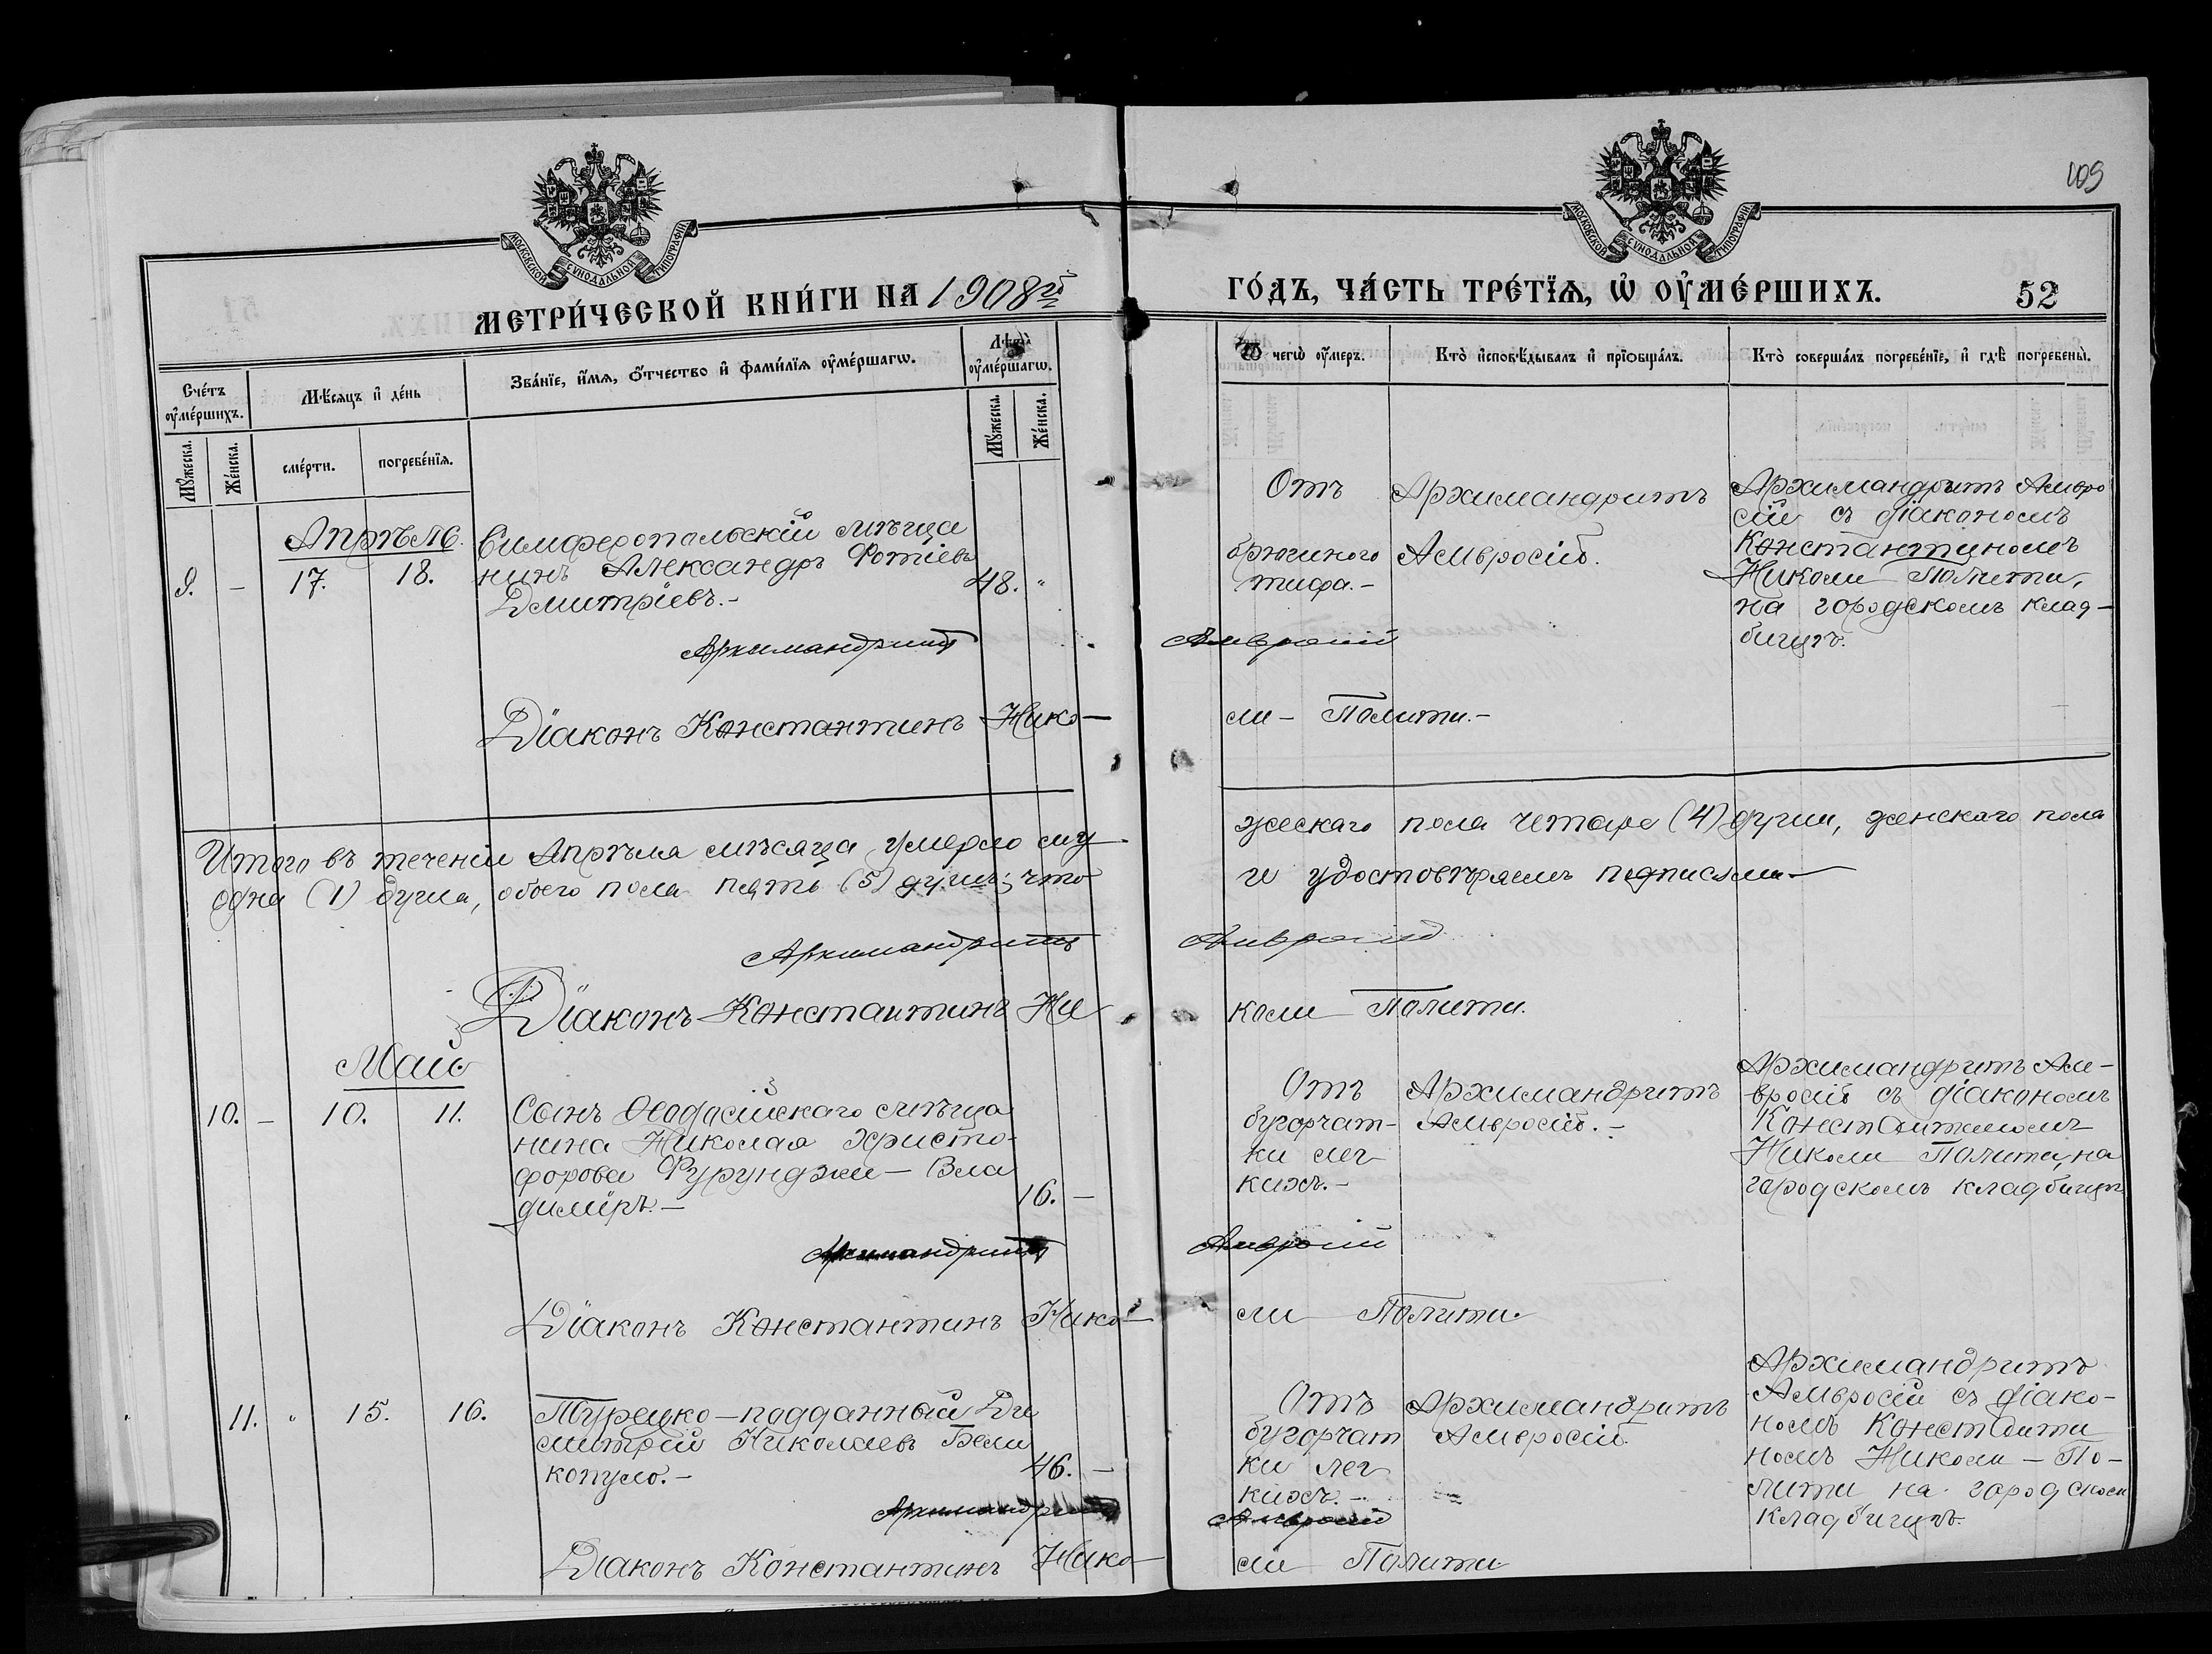 109
МОСКОВСКОЙ СѴНОДАЛЬНОЙ ТИПОГРАФІИ
МОСКОВСКОЙ СѴНОДАЛЬНОЙ ТИПОГРАФІИ
МЕТРИ́ЧЕСКОЙ КНИ́ГИ НА 1908й
ГО́ДЪ, ЧА́СТЬ ТРЕ́ТЇѦ, Ѡ҆ ОУ҆МЕ́РШИХЪ.
52
Сче́тъ оу҆ме́ршихъ.
Мѣ́сѧцъ и҆ де́нь
Зва́нїе, и҆́мѧ, ѻ҆́тчество и҆ фами́лїѧ оу҆ме́ршагѡ.
Лѣ́та оу҆ме́ршагѡ.
Мꙋ́жеска.
Же́нска.
сме́рти.
погребе́нїѧ.
Мꙋ́жеска.
Же́нска.
Ѿ чегѡ̀ оу҆́меръ.
Кто̀ и҆сповѣ́дывалъ и҆ прїѻбща́лъ.
Кто̀ соверша́лъ погребе́нїе, и҆ гдѣ̀ погребены̀.
Апрѣль.
9. – 17. 18.
Симферопольскій мѣща
нинъ Александръ Фотіевъ
Дмитріевъ.–
48. "
Отъ
брюшного
тифа.–
Архимандритъ
Амвросій.
Архимандритъ Амвро
сій съ діакономъ
Константиномъ
Николи Полити,
на городскомъ клад–
бищѣ.
Архимандритъ Амвросій
Діаконъ Константинъ Нико–
ли – Полити.–
Итого въ теченіи Апрѣля мѣсяца умерло му
жескаго пола четыре (4) души, женскаго пола
одна (1) душа, обоего пола пять (5) душъ; что
и удостовѣряемъ подписями
Архимандритъ Амвросій
Діаконъ Константинъ Ни
коли Полити.
Май
10. – 10. 11.
Сынъ Ѳеодосійскаго мѣща
нина Николая Христо–
форова Фурунджи – Вла
димiръ.–
16. –
Отъ
бугорчат–
ки лег
кихъ.–
Архимандритъ
Амвросій.–
Архимандритъ Ам–
вросій съ діакономъ
Константиномъ
Николи Полити, на
городскомъ кладбищѣ
Архимандритъ Амвросій
Діаконъ Константинъ Нико–
ли Полити.
11. " 15. 16.
Турецко–подданный Ди
митрій Николаевъ Бели
копуло.–
46. –
Отъ
бугорчат
ки лег
кихъ.–
Архимандритъ
Амвросій.
Архимандритъ
Амвросій съ діако–
номъ Константи
номъ Николи – По–
лити на городском
кладбищѣ.
Архимандритъ Амвросій
Діаконъ Константинъ Нико–
ли Полити